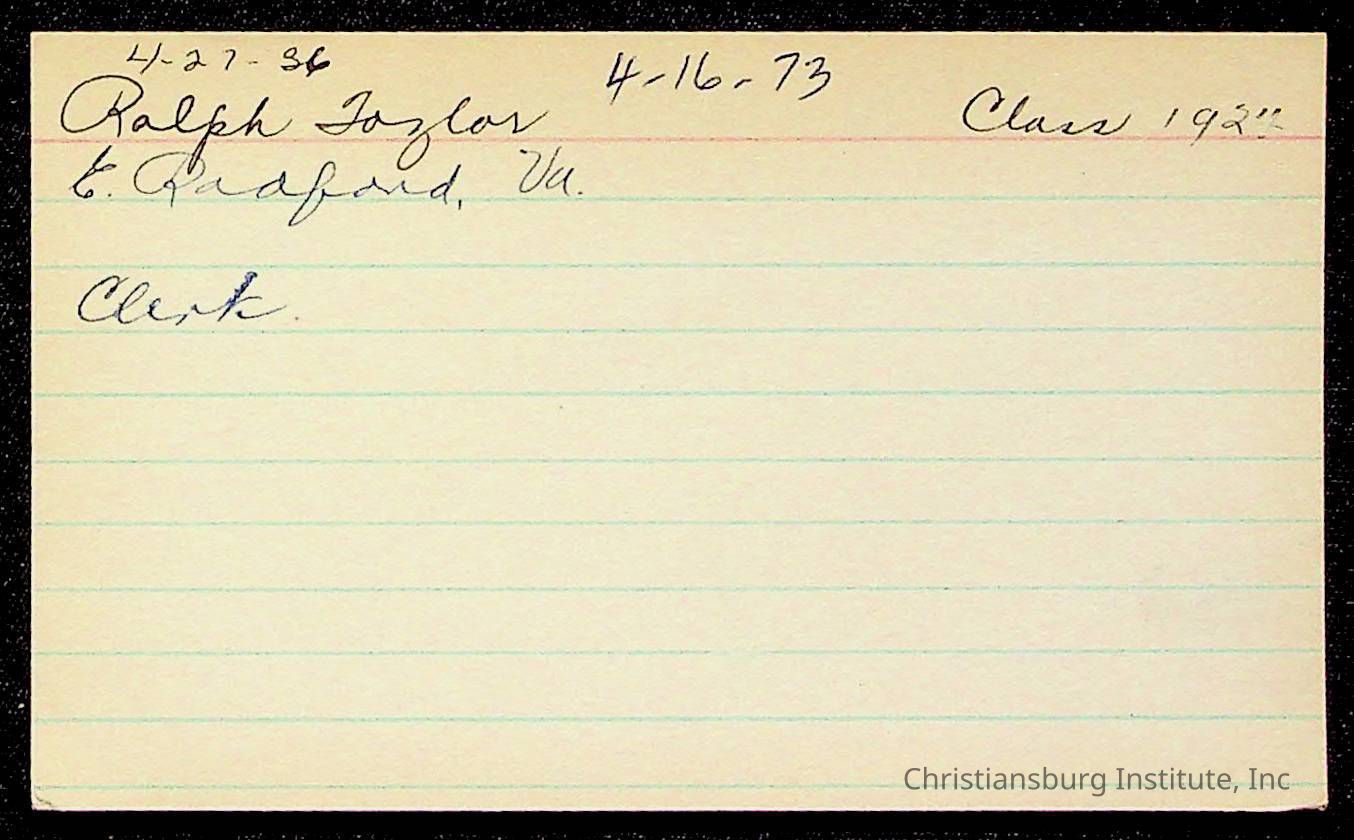 4-27-36
4-16-73
Ralph Taylor
Class
E. Radford, Va.
Clerk
Christiansburg Institute, Inc